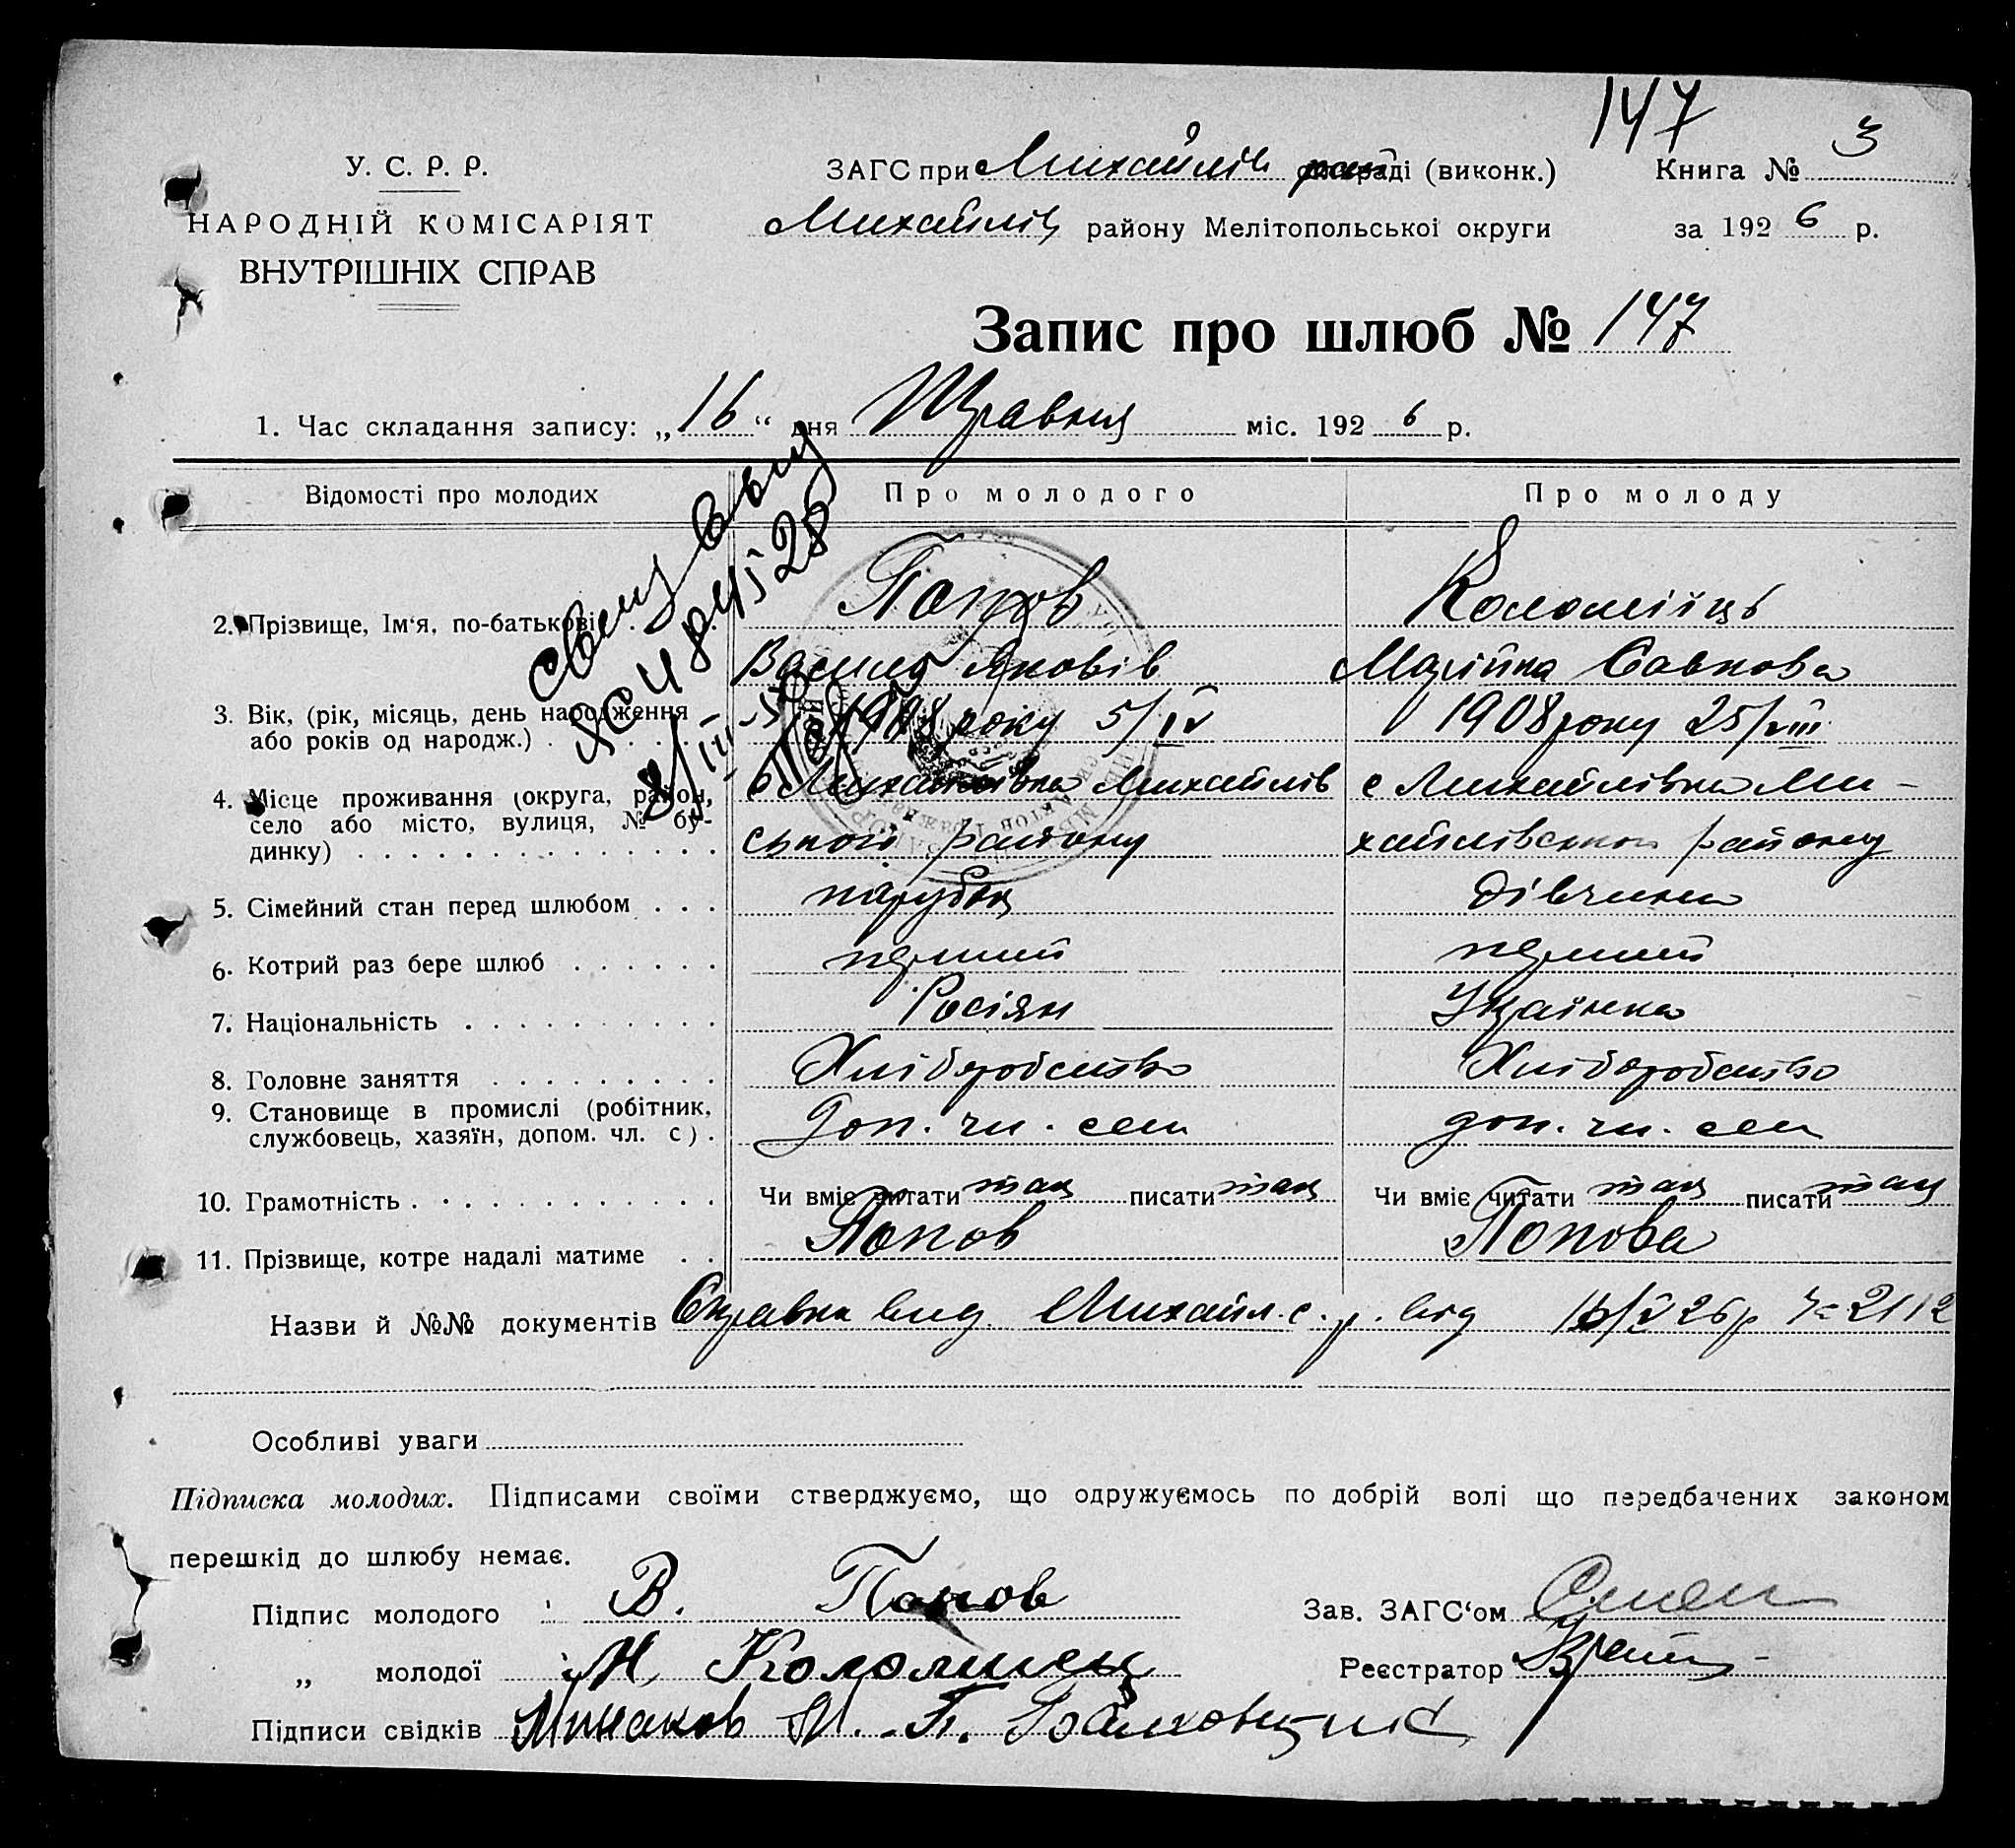 147
У. С. Р. Р.
НАРОДНІЙ КОМІСАРІЯТ
ВНУТРІШНІХ СПРАВ
ЗАГС при Михайлів рай раді (виконк.) Книга № 3
Михайлів району Мелітопольської округи за 1926 р.
Запис про шлюб № 147
1. Час складання запису: „16“ дня Травня міс. 1926 р.
Відомості про молодих Про молодого Про молоду
2. Прізвище, Ім‘я, по-батькові Попов Коломієць
Василь Яковів Марійка Савкова
3. Вік, (рік, місяць, день народження або років од народж.) . 1908 року 5/IV 1908 року 25/VIII
4. Місце проживання (округа, район, с Михайлівка Михайлів с Михайлівка Ми-
село або місто, вулиця, № бу-
динку) . . . . . . . . . . . . . . ського району хайлівського району
5. Сімейний стан перед шлюбом . . . парубок дівчина
6. Котрий раз бере шлюб . . . . . . перший перший
7. Національність . . . . . . . . . . Росіян Українка
8. Головне заняття . . . . . . . . . Хліборобство Хліборобство
9. Становище в промислі (робітник,
службовець, хазяїн, допом. чл. с) . Доп. чл. сем доп. чл. сем
10. Грамотність . . . . . . . . . . . . Чи вміє читати так писати так Чи вміє читати так писати так
11. Прізвище, котре надалі матиме . . Попов Попова
Назви й №№ документів Справка вид Михайл. с. р. від 16/V 26 р № 2112
Особливі уваги
Підписка молодих. Підписами своїми стверджуємо, що одружуємось по добрій волі що передбачених законом
перешкід до шлюбу немає.
Підпис молодого В. Попов Зав. ЗАГС‘ом
„ молодої М Коломиец Реєстратор
Підписи свідків Минаков И. П.